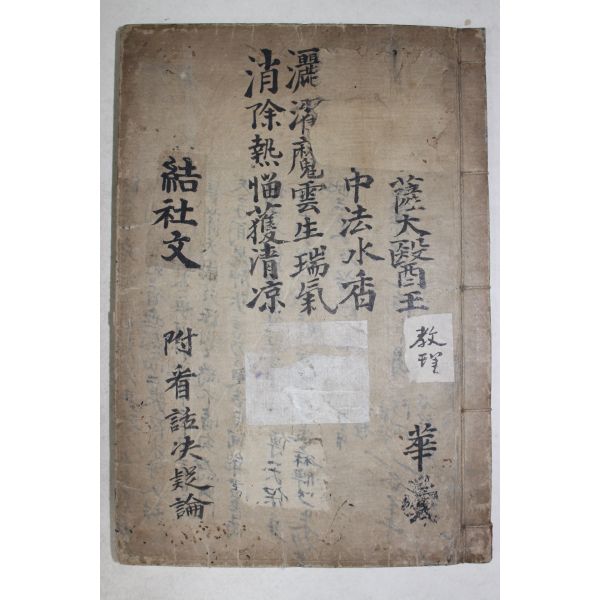 薩大醫王
教理
華
中法水香
灑濯魔雲生瑞氣
消除熱惱獲清凉
結社文
附看話决疑論